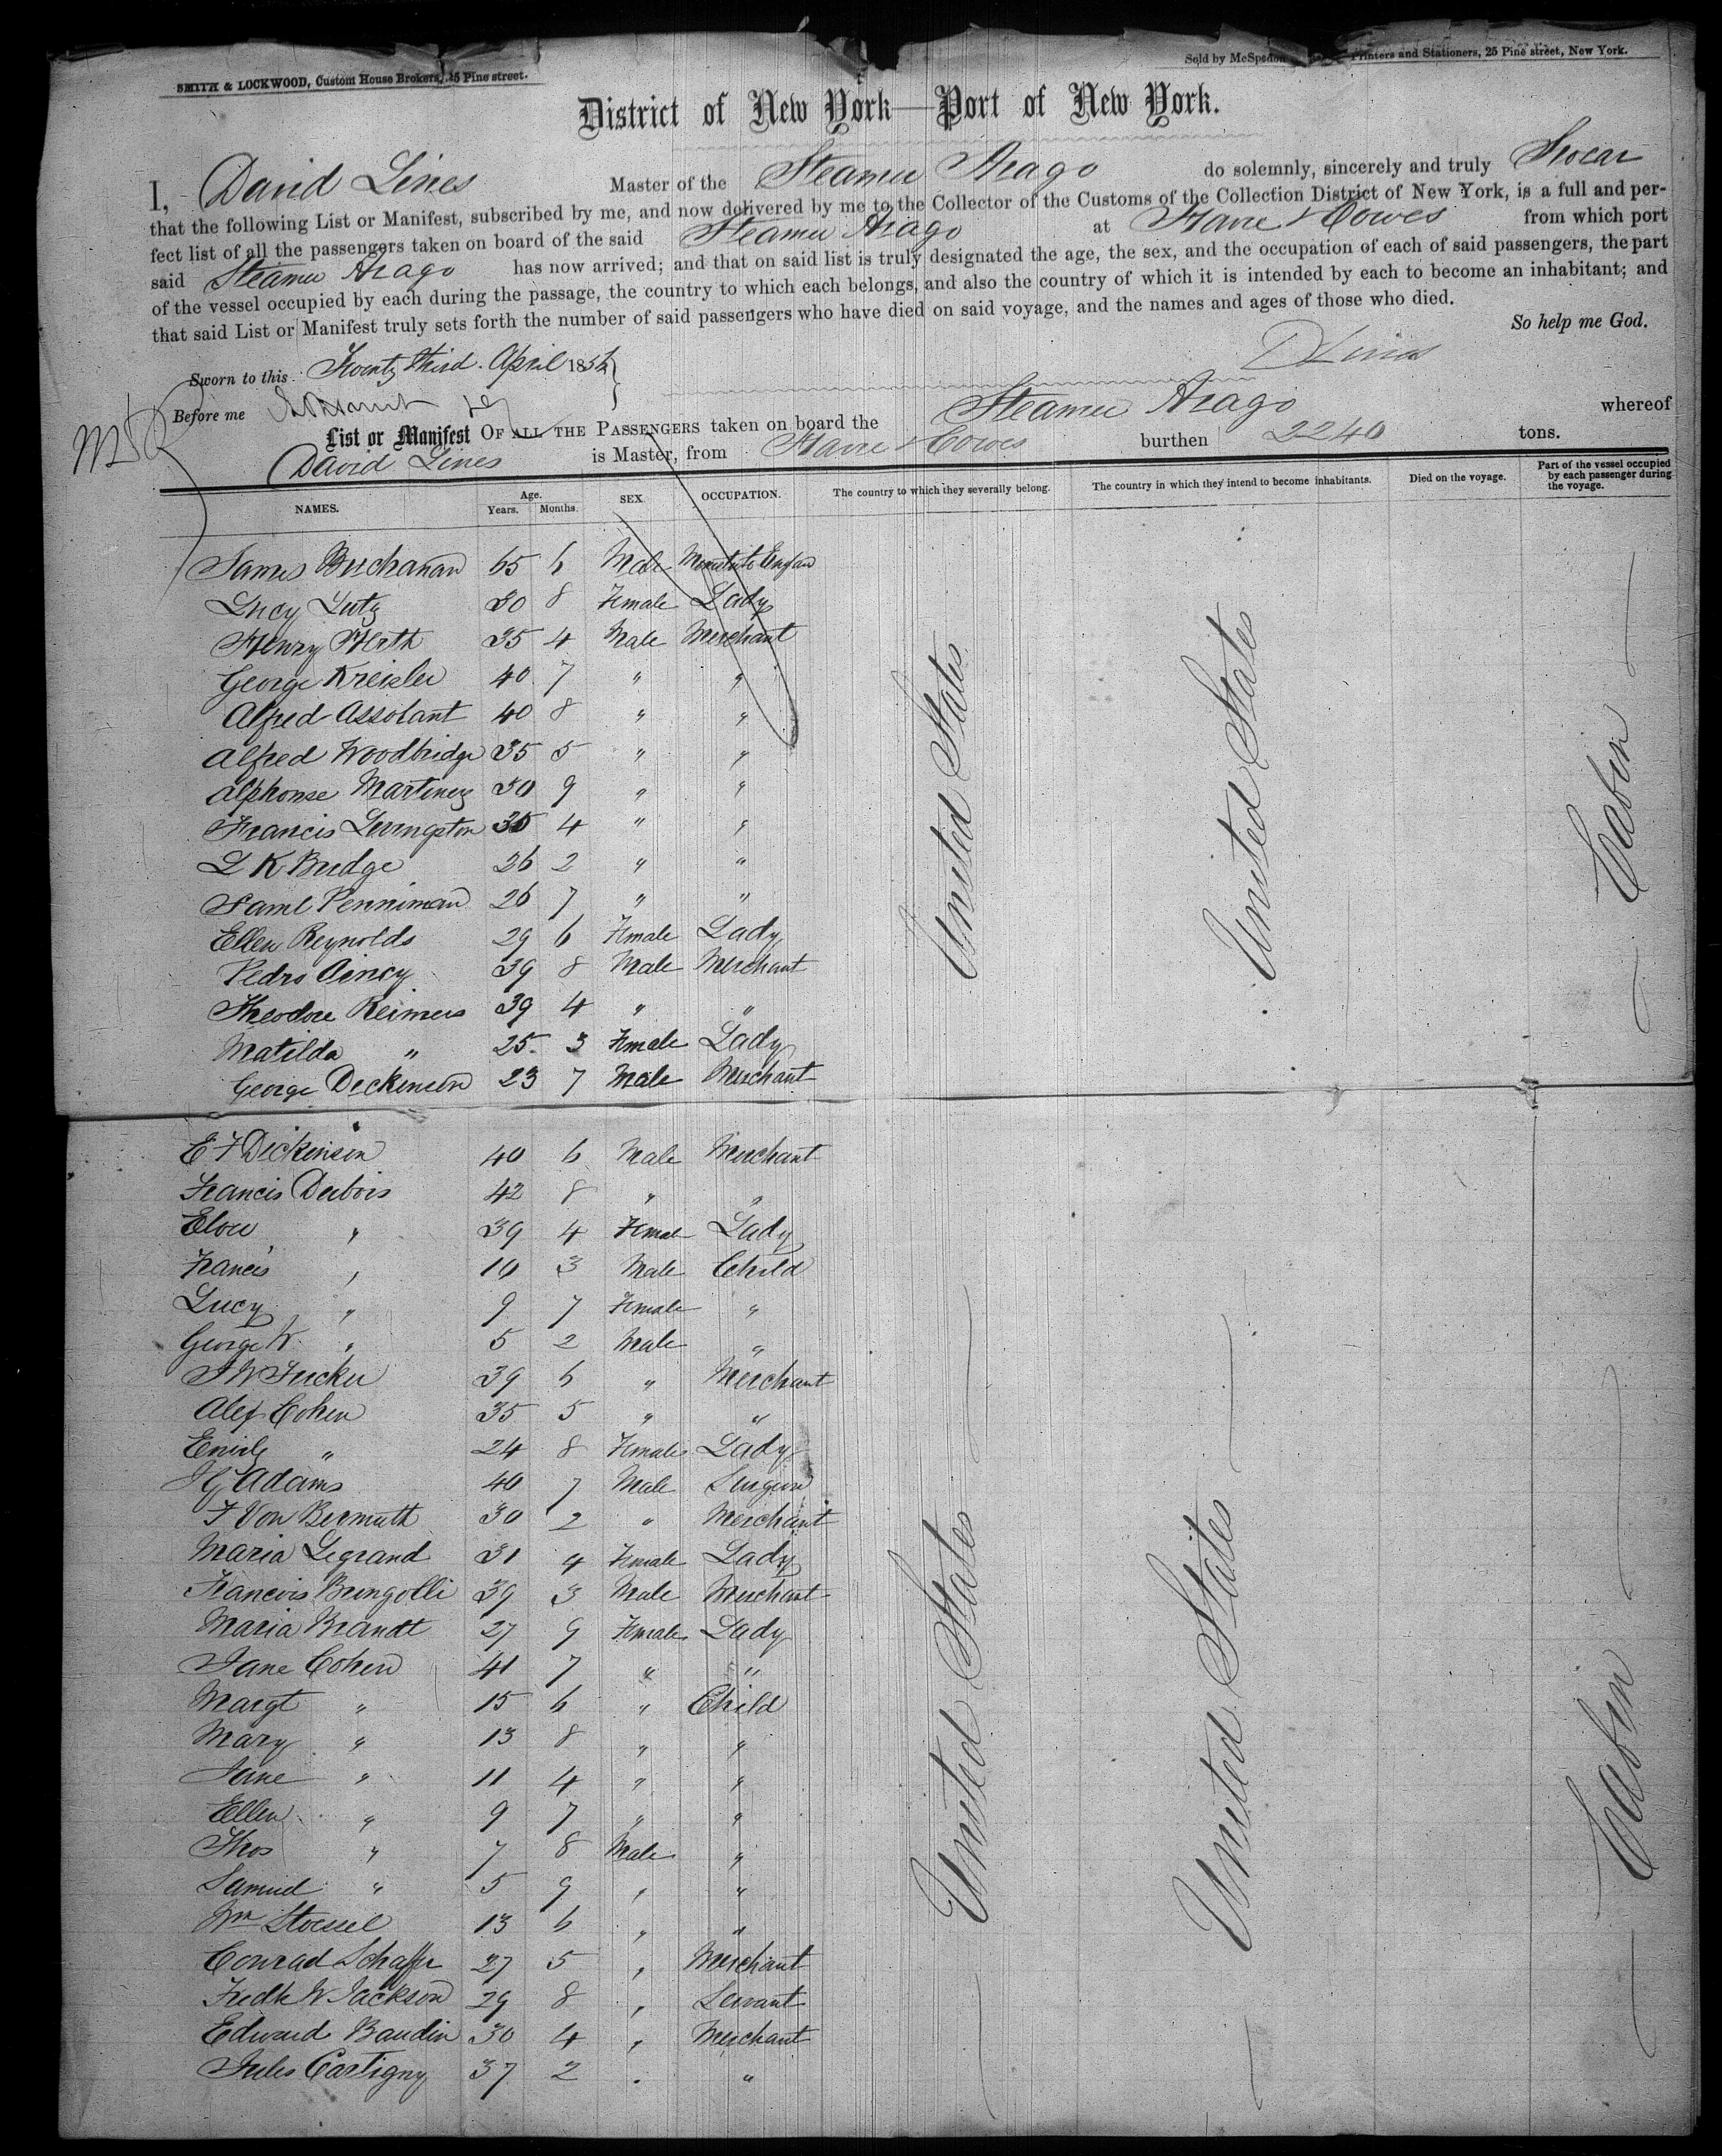 SMITH & LOCKWOOD, Custom House Brokers, 45 Pine street.
Sold by McSpedon Printers and Stationers, 25 Pine street, New York.
District of New York—Port of New York.
I, David Lines Master of the Steamer Arago do solemnly, sincerely and truly Swear
that the following List or Manifest, subscribed by me, and now delivered by me to the Collector of the Customs of the Collection District of New York, is a full and per-
fect list of all the passengers taken on board of the said Steamer Arago at Havre & Cowes from which port
said Steamer Arago has now arrived; and that on said list is truly designated the age, the sex, and the occupation of each of said passengers, the part
of the vessel occupied by each during the passage, the country to which each belongs, and also the country of which it is intended by each to become an inhabitant; and
that said List or Manifest truly sets forth the number of said passengers who have died on said voyage, and the names and ages of those who died.
So help me God.
D Lines
Sworn to this Twenty third April 185
Before me
List or Manifest OF ALL THE PASSENGERS taken on board the Steamer Arago whereof
David Lines is Master, from Havre & Cowes burthen 2240 tons.
NAMES. Age. Years. Months. SEX. OCCUPATION. The country to which they severally belong. The country in which they intend to become inhabitants. Died on the voyage. Part of the vessel occupied by each passenger during the voyage.
James Buchanan 65 6 Male
Lucy Lutz 30 8 Female Lady
Henry Herth 35 4 Male Merchant
George Kreisler 40 7 " "
Alfred Assolant 40 8 " "
Alfred Woodbridge 35 5 " "
Alphonse Martinez 30 9 " "
Francis Livingston 35 4 " "
L K Budge 26 2 " "
Saml Penniman 26 7 " "
Ellen Reynolds 29 6 Female Lady
Pedro 39 8 Male Merchant
Theodore Reimers 39 4 " "
Matilda " 25 3 Female Lady
George Dickenson 23 7 Male Merchant
United States United States Cabin
E F Dickinson 40 6 Male Merchant
Francis Dubois 42 8 " "
" 39 4 Female Lady
Francis " 10 3 Male Child
Lucy " 9 7 Female "
George W " 5 2 Male "
J W Tucker 39 6 " Merchant
Alex Cohen 35 5 " "
Emily " 24 8 Female Lady
Adams 40 7 Male Surgeon
F Von Bermuth 30 2 " Merchant
Maria Legrand 31 4 Female Lady
Francois 39 3 Male Merchant
Maria Brandt 27 9 Female Lady
Jane Cohen 41 7 " "
Margt " 15 6 " Child
Mary " 13 8 " "
Jane " 11 4 " "
Ellen " 9 7 " "
Thos " 7 8 Male "
Samuel " 5 9 " "
Wm Stoessel 13 6 " "
Conrad Schaffer 27 5 " Merchant
Fredk W Jackson 29 8 " Servant
Edward Baudin 30 4 " Merchant
Jules Cartigny 37 2 " "
United States United States Cabin